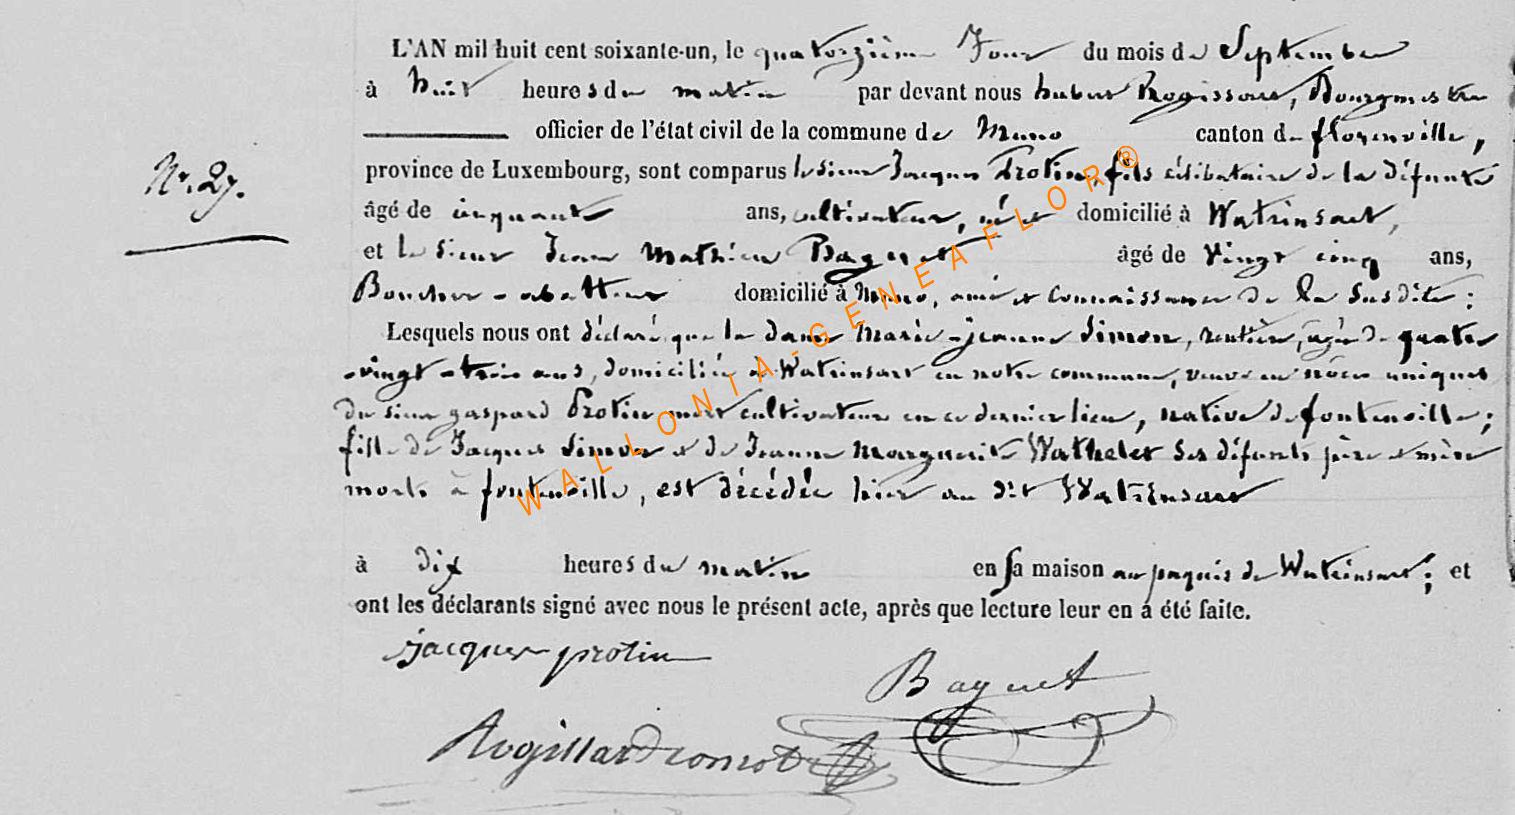 L'AN mil huit cent soixante-un, le quatorzième Jour du mois de Septembre
à huit heures du matin par devant nous hubert Rogissart, Bourgmestre
officier de l'état civil de la commune de Muno canton de florenville,
Nº. 27.
province de Luxembourg, sont comparus le sieur Jacques Protin, fils célibataire de la défunte
âgé de cinquante ans, cultivateur, né et domicilié à Watrinsart,
et le sieur Jean Mathieu Baguet âgé de vingt cinq ans,
Boucher-abatteur domicilié à Muno, ami et connaissance de la susdite:
Lesquels nous ont déclaré que la dame Marie-jeanne Simon, rentière, âgée de quatre
-vingt-trois ans, domiciliée à Watrinsart en notre commune, veuve en nôces uniques
du sieur gaspard Protin mort cultivateur en ce dernier lieu, native de fontenoille;
fille de Jacques Simon et de Jeanne Marguerite Wathelet ses défunts père et mère
morts à fontenoille, est décédée hier au dit Watrinsart
à dix heures du matin en sa maison au paquis de Watrinsart; et
ont les déclarants signé avec nous le présent acte, après que lecture leur en a été faite.
jacques protin
Baguet
WALLONIA-GENEAFLOR®